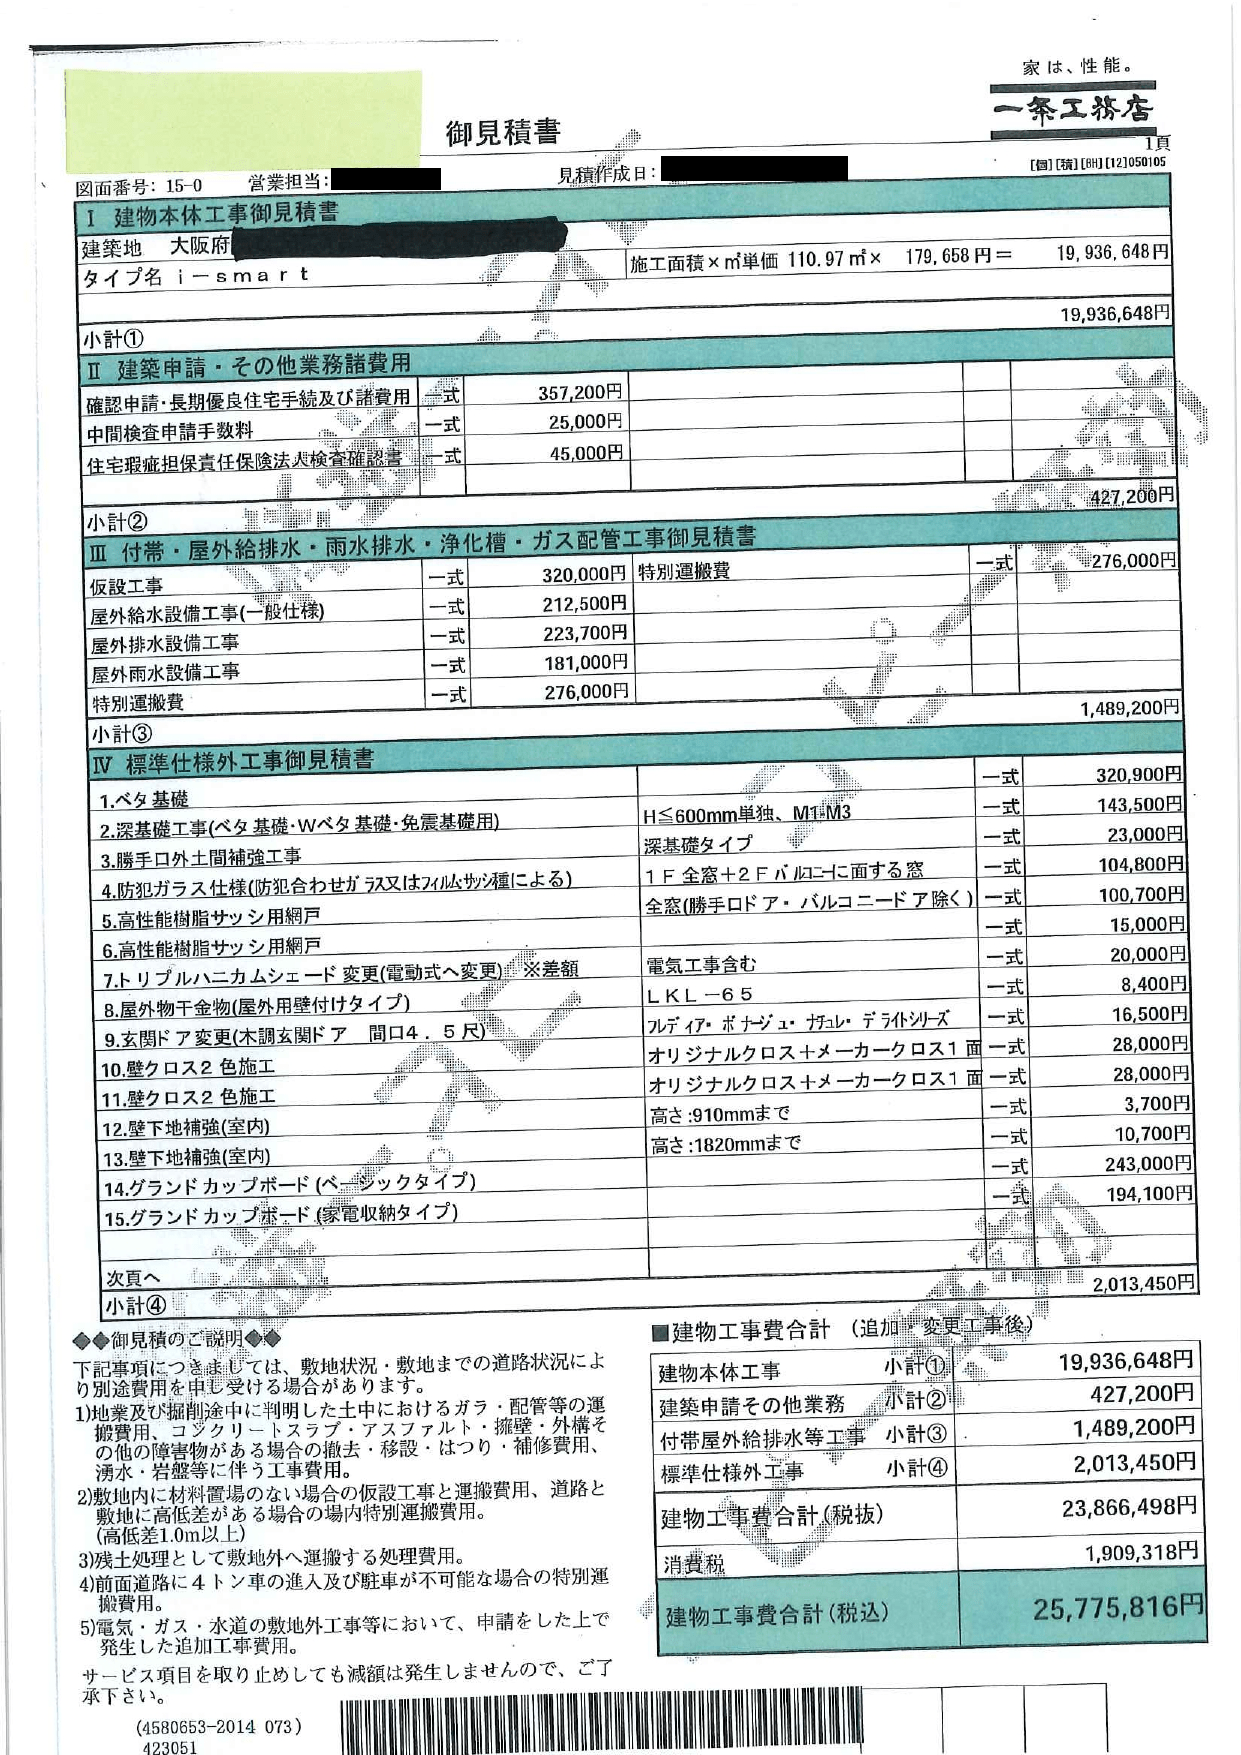 家は、性能。
一条工務店
御見積書
1頁
[個][積][8H][12]050105
図面番号: 15-0 営業担当: 見積作成日:
Ⅰ 建物本体工事御見積書
建築地 大阪府
タイプ名 i-smart 施工面積×㎡単価 110.97㎡× 179,658円= 19,936,648円
小計① 19,936,648円
Ⅱ 建築申請・その他業務諸費用
確認申請・長期優良住宅手続及び諸費用 一式 357,200円
中間検査申請手数料 一式 25,000円
住宅瑕疵担保責任保険法人検査確認書 一式 45,000円
小計② 427,200円
Ⅲ 付帯・屋外給排水・雨水排水・浄化槽・ガス配管工事御見積書
仮設工事 一式 320,000円 特別運搬費 一式 276,000円
屋外給水設備工事(一般仕様) 一式 212,500円
屋外排水設備工事 一式 223,700円
屋外雨水設備工事 一式 181,000円
特別運搬費 一式 276,000円
小計③ 1,489,200円
Ⅳ 標準仕様外工事御見積書
1.ベタ基礎 一式 320,900円
2.深基礎工事(ベタ基礎・Wベタ基礎・免震基礎用) H≦600mm単独、M1-M3 一式 143,500円
3.勝手口外土間補強工事 深基礎タイプ 一式 23,000円
4.防犯ガラス仕様(防犯合わせガラス又はフィルム・サッシ種による) 1F全窓+2Fバルコニーに面する窓 一式 104,800円
5.高性能樹脂サッシ用網戸 全窓(勝手口ドア・バルコニードア除く) 一式 100,700円
6.高性能樹脂サッシ用網戸 一式 15,000円
7.トリプルハニカムシェード変更(電動式へ変更) ※差額 電気工事含む 一式 20,000円
8.屋外物干金物(屋外用壁付けタイプ) LKL-65 一式 8,400円
9.玄関ドア変更(木調玄関ドア 間口4.5尺) フルディア・ボナージュ・ナチュレ・デライトシリーズ 一式 16,500円
10.壁クロス2色施工 オリジナルクロス+メーカークロス1面 一式 28,000円
11.壁クロス2色施工 オリジナルクロス+メーカークロス1面 一式 28,000円
12.壁下地補強(室内) 高さ:910mmまで 一式 3,700円
13.壁下地補強(室内) 高さ:1820mmまで 一式 10,700円
14.グランドカップボード(ベーシックタイプ) 一式 243,000円
15.グランドカップボード(家電収納タイプ) 一式 194,100円
次頁へ
小計④ 2,013,450円
◆◆御見積のご説明◆◆
下記事項につきましては、敷地状況・敷地までの道路状況によ
り別途費用を申し受ける場合があります。
1)地業及び掘削途中に判明した土中におけるガラ・配管等の運
搬費用、コンクリートスラブ・アスファルト・擁壁・外構そ
の他の障害物がある場合の撤去・移設・はつり・補修費用、
湧水・岩盤等に伴う工事費用。
2)敷地内に材料置場のない場合の仮設工事と運搬費用、道路と
敷地に高低差がある場合の場内特別運搬費用。
(高低差1.0m以上)
3)残土処理として敷地外へ運搬する処理費用。
4)前面道路に4トン車の進入及び駐車が不可能な場合の特別運
搬費用。
5)電気・ガス・水道の敷地外工事等において、申請をした上で
発生した追加工事費用。
サービス項目を取り止めしても減額は発生しませんので、ご了
承下さい。
(4580653-2014 073)
423051
■建物工事費合計 (追加・変更工事後)
建物本体工事 小計① 19,936,648円
建築申請その他業務 小計② 427,200円
付帯屋外給排水等工事 小計③ 1,489,200円
標準仕様外工事 小計④ 2,013,450円
建物工事費合計(税抜) 23,866,498円
消費税 1,909,318円
建物工事費合計(税込) 25,775,816円